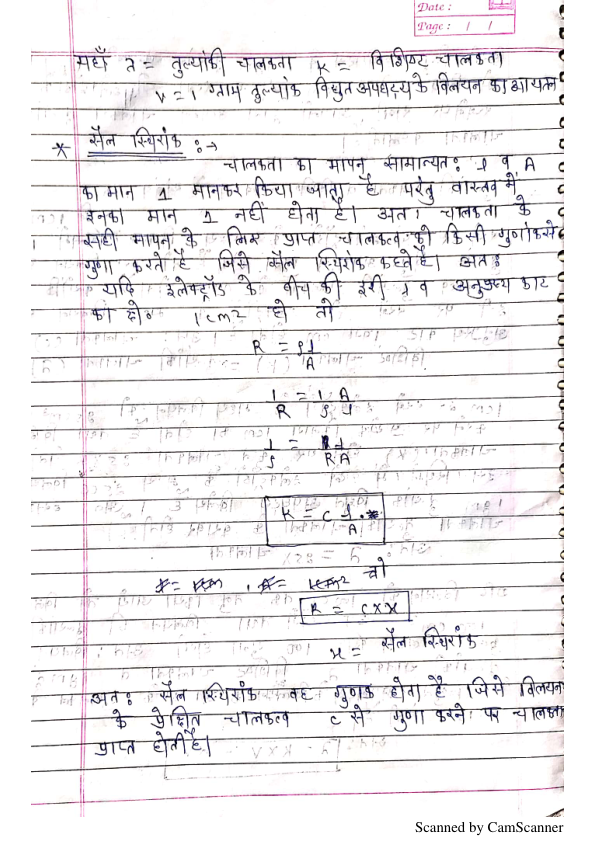 Date :
Page : / /
यहाँ λ = तुल्यांकी चालकता K = विशिष्ट चालकता
V = 1 ग्राम तुल्यांक विद्युत अपघट्य के विलयन का आयतन
* सैल स्थिरांक :→
चालकता का मापन सामान्यतः l व A
का मान 1 मानकर किया जाता है परंतु वास्तव में
इनका मान 1 नहीं होता है। अतः चालकता के
सही मापन के लिए प्राप्त चालकत्व को किसी गुणांक से
गुणा करते है जिसे सैल स्थिरांक कहते है। अतः
यदि इलेक्ट्रॉड के बीच की दूरी l व अनुप्रस्थ काट
का क्षे० 1cm2 हो तो
R = ρ l/A
1/R = 1/ρ A/l
1/ρ = 1/R l/A
K = C l/A
तो
K = C × x
x = सैल स्थिरांक
अतः सैल स्थिरांक वह गुणक होता है जिसे विलयन
के प्रेक्षित चालकत्व C से गुणा करने पर चालकता
प्राप्त होती है।
Scanned by CamScanner